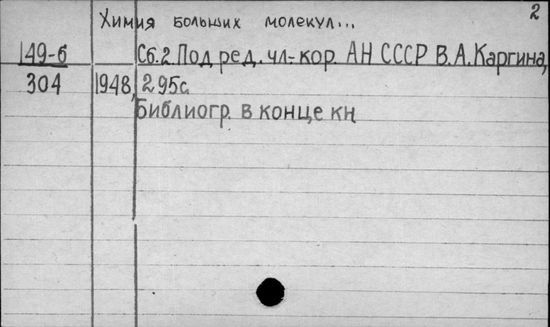 2
Химия больших молекул...
149-б Сб.2. Под ред. чл.-кор. АН СССР В.А.Каргина,
304 1948, 295с.
Библиогр. в конце кн